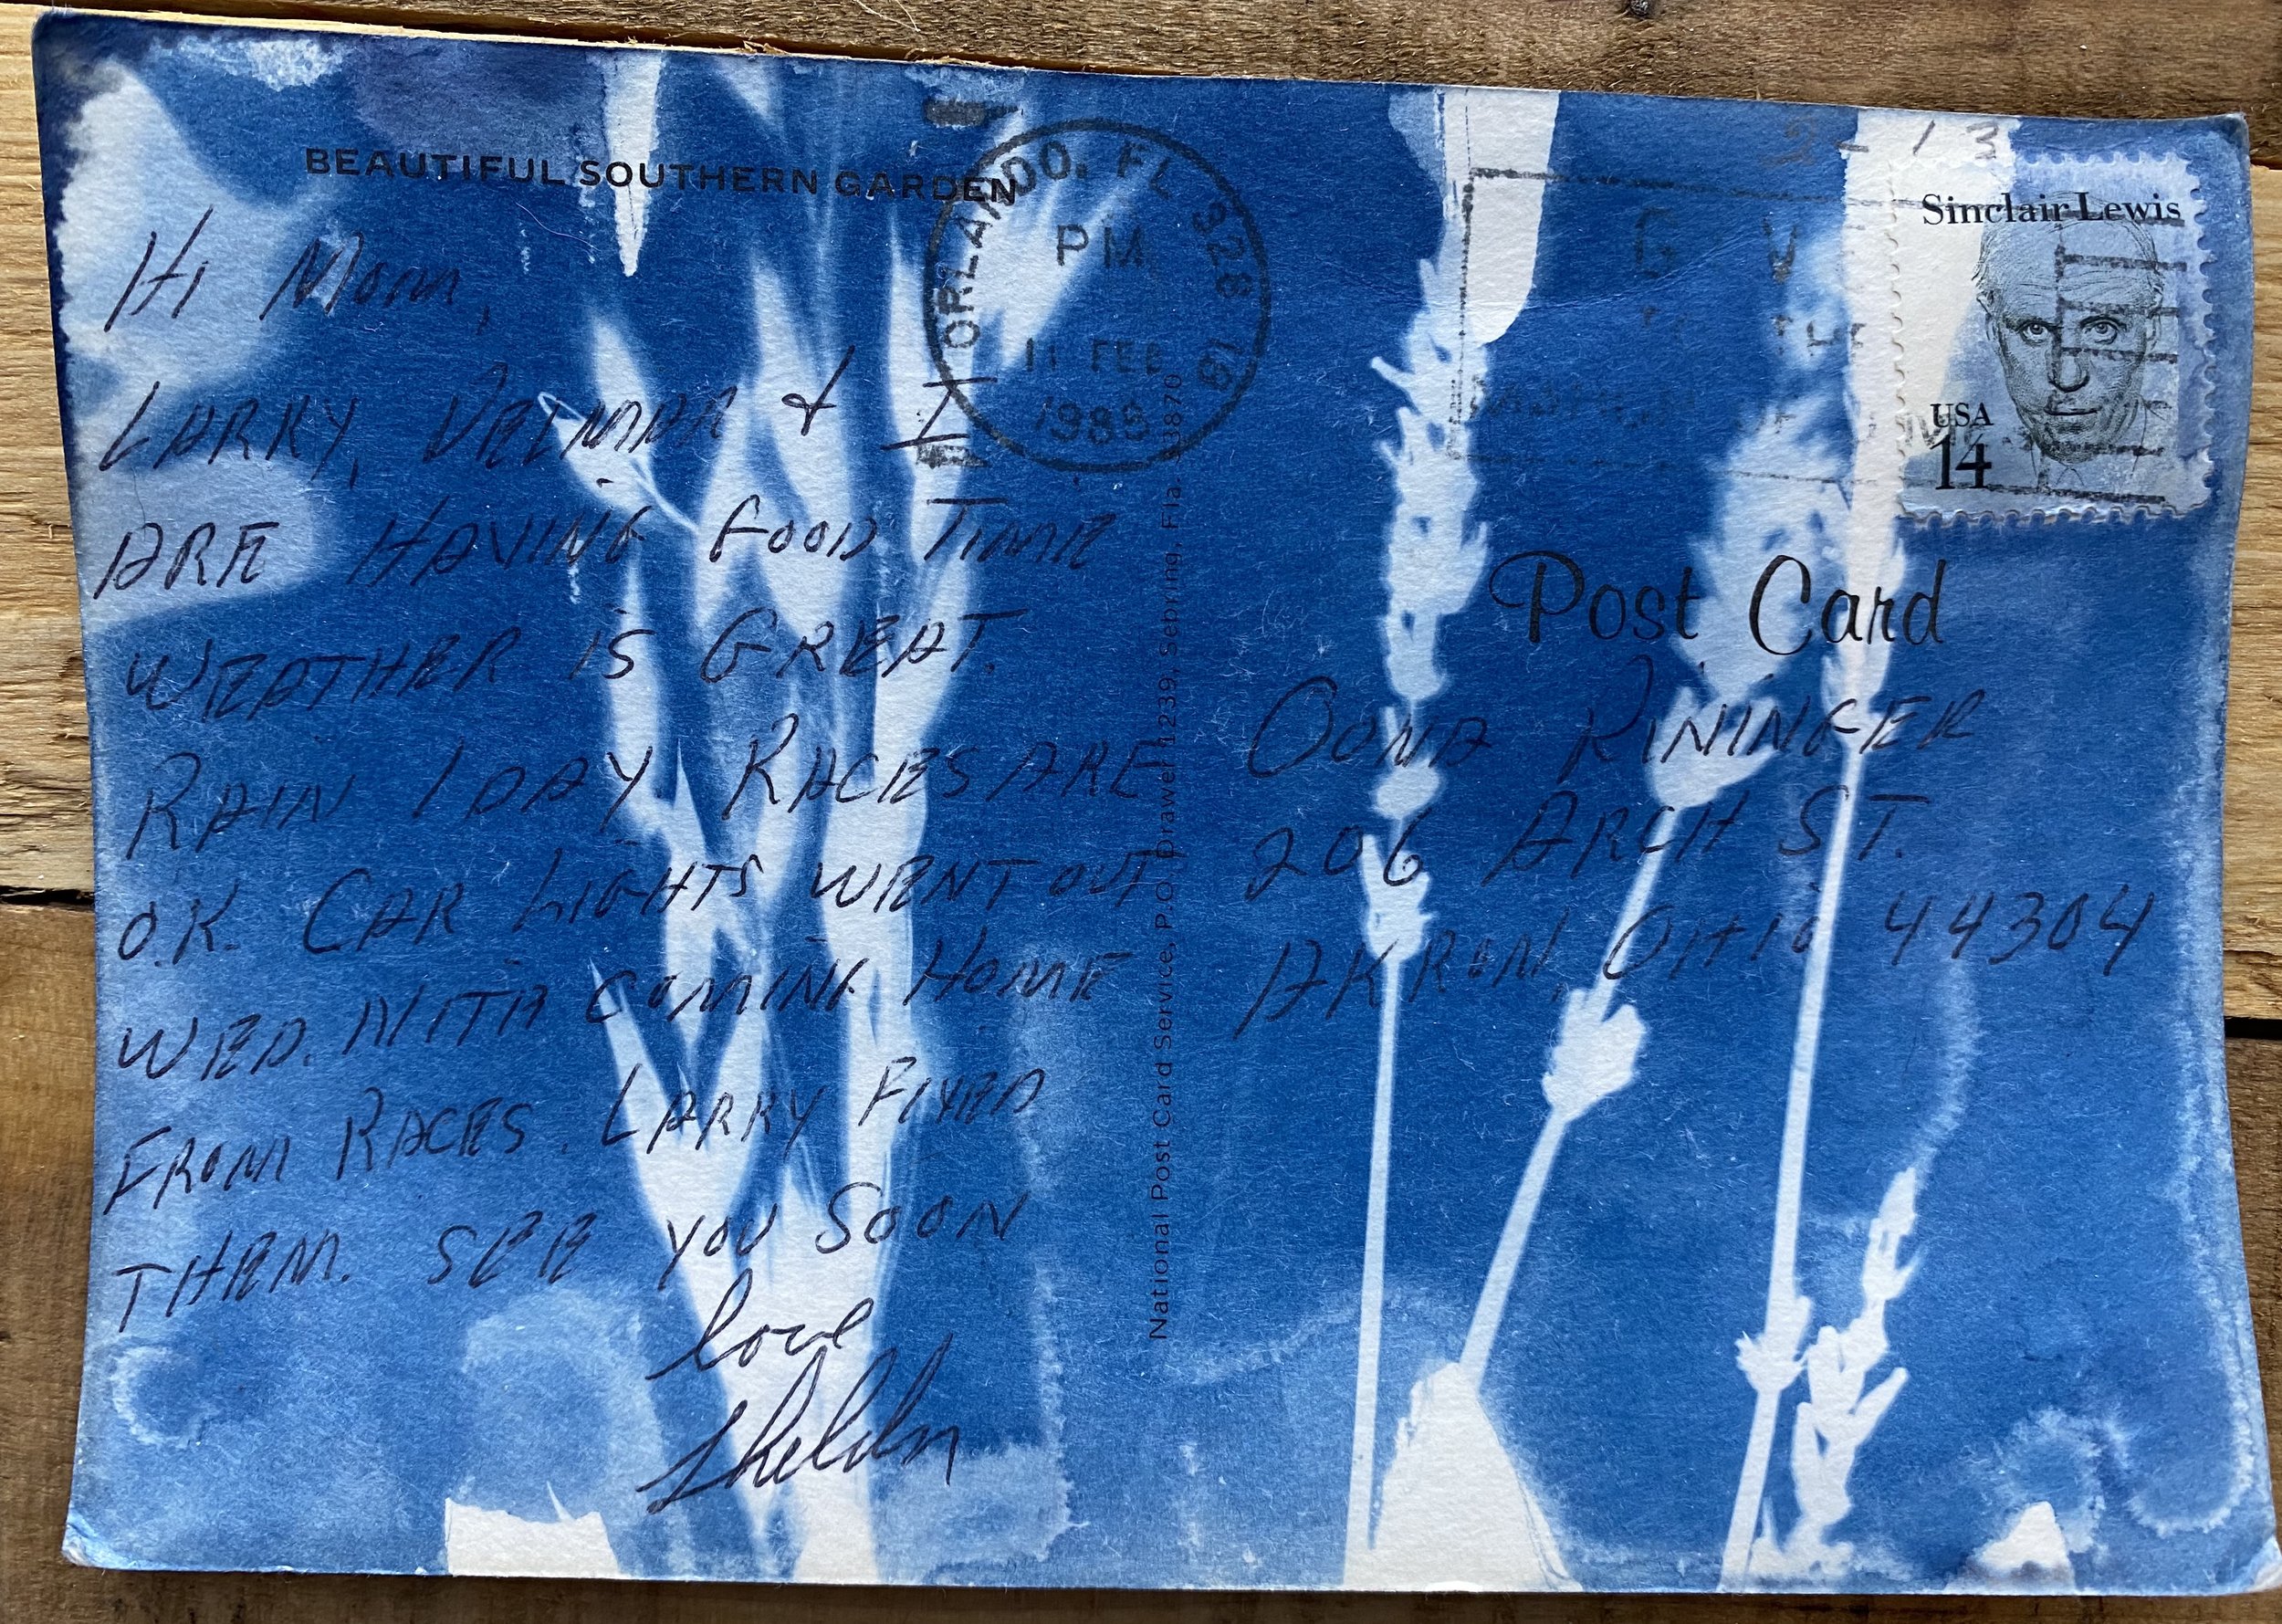 BEAUTIFUL SOUTHERN GARDEN
Hi Mom,
LARRY, DELMAR & I
ARE HAVING GOOD TIME
WEATHER iS GREAT.
RAIN 1 DAY RACES ARE
O.K. CAR LIGHTS WENT OUT
WED. NITE COMING HOME
FROM RACES. LARRY FIXED
THEM. SEE YOU SOON
love
Sheldon
National Post Card Service, P.O. Drawer 1239, Sebring, Fla. 33870
ORLANDO, FL 328
PM
11 FEB
2-13
Sinclair Lewis
USA
14
Post Card
OONA RININGER
206 ARCH ST.
AKRON, OHiO 44304